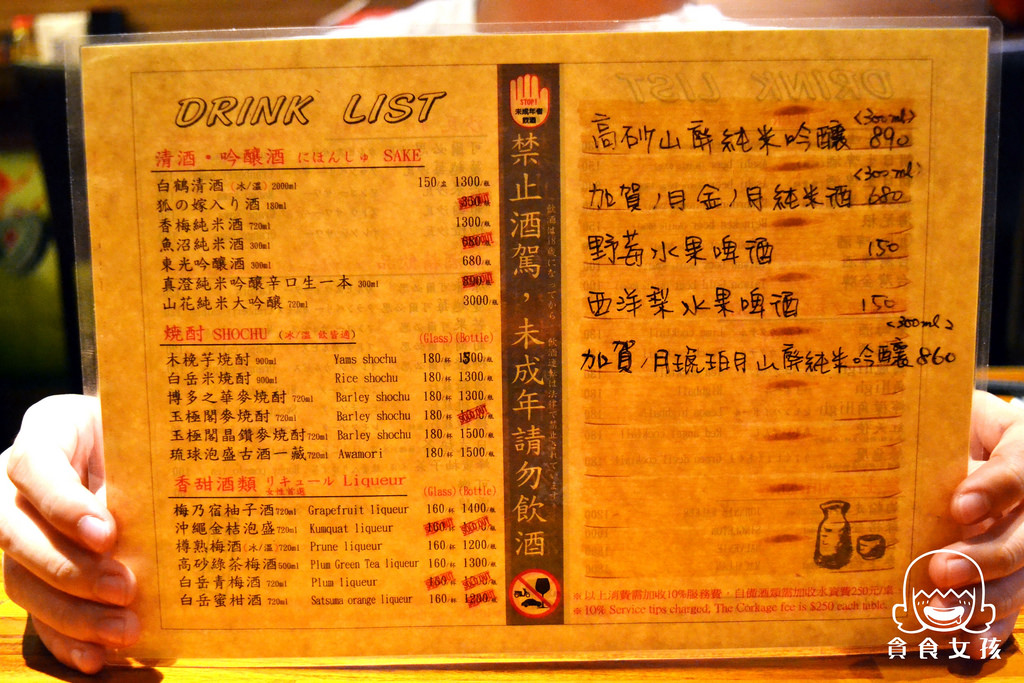 DRINK LIST
清酒・吟醸酒 にほんしゅ SAKE
白鶴清酒(冰/溫)2000ml 150/盅 1300/瓶
狐の嫁入り酒 180ml
香梅純米酒 720ml 1300/瓶
魚沼純米酒 300ml
東光吟釀酒 300ml 680/瓶
真澄純米吟釀辛口生一本 300ml
山花純米大吟釀 720ml 3000/瓶
焼酎 SHOCHU (冰/溫 飲皆適) (Glass)(Bottle)
木挽芋焼酎 900ml Yams shochu 180/杯 1500/瓶
白岳米焼酎 900ml Rice shochu 180/杯 1300/瓶
博多之華麥焼酎 720ml Barley shochu 180/杯 1300/瓶
玉極閣麥焼酎 720ml Barley shochu 180/杯
玉極閣晶鑽麥焼酎 720ml Barley shochu 180/杯 1500/瓶
琉球泡盛古酒一藏 720ml Awamori 180/杯 1500/瓶
香甜酒類 リキュール Liqueur (Glass)(Bottle)
女性首選
梅乃宿柚子酒 720ml Grapefruit liqueur 160/杯 1400/瓶
沖繩金桔泡盛 720ml Kumquat liqueur
樽熟梅酒(冰/溫)720ml Prune liqueur 160/杯 1200/瓶
高砂綠茶梅酒 500ml Plum Green Tea liqueur 160/杯 1300/瓶
白岳青梅酒 720ml Plum liqueur
白岳蜜柑酒 720ml Satsuma orange liqueur 160/杯 1200/瓶
STOP!
未成年者
飲酒
禁止酒駕，未成年請勿飲酒
<300ml>
高砂山廃純米吟釀 890
<300ml>
加賀ノ月金ノ月純米酒 680
野莓水果啤酒 150
西洋梨水果啤酒 150
<300ml>
加賀ノ月琥珀月山廃純米吟釀 860
※以上消費需加收10%服務費，自備酒類需加收水資費250元/桌
※10% Service tips charged, The Corkage fee is $250 each table.
貪食女孩